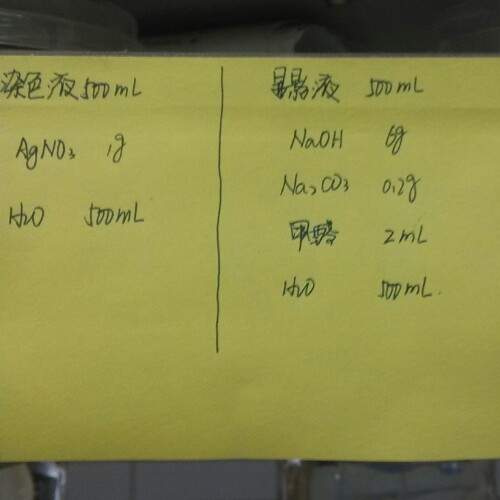 染色液 500mL
AgNO3 1g
H2O 500mL
显影液 500mL
NaOH 6g
Na2CO3 0.2g
甲醛 2mL
H2O 500mL.